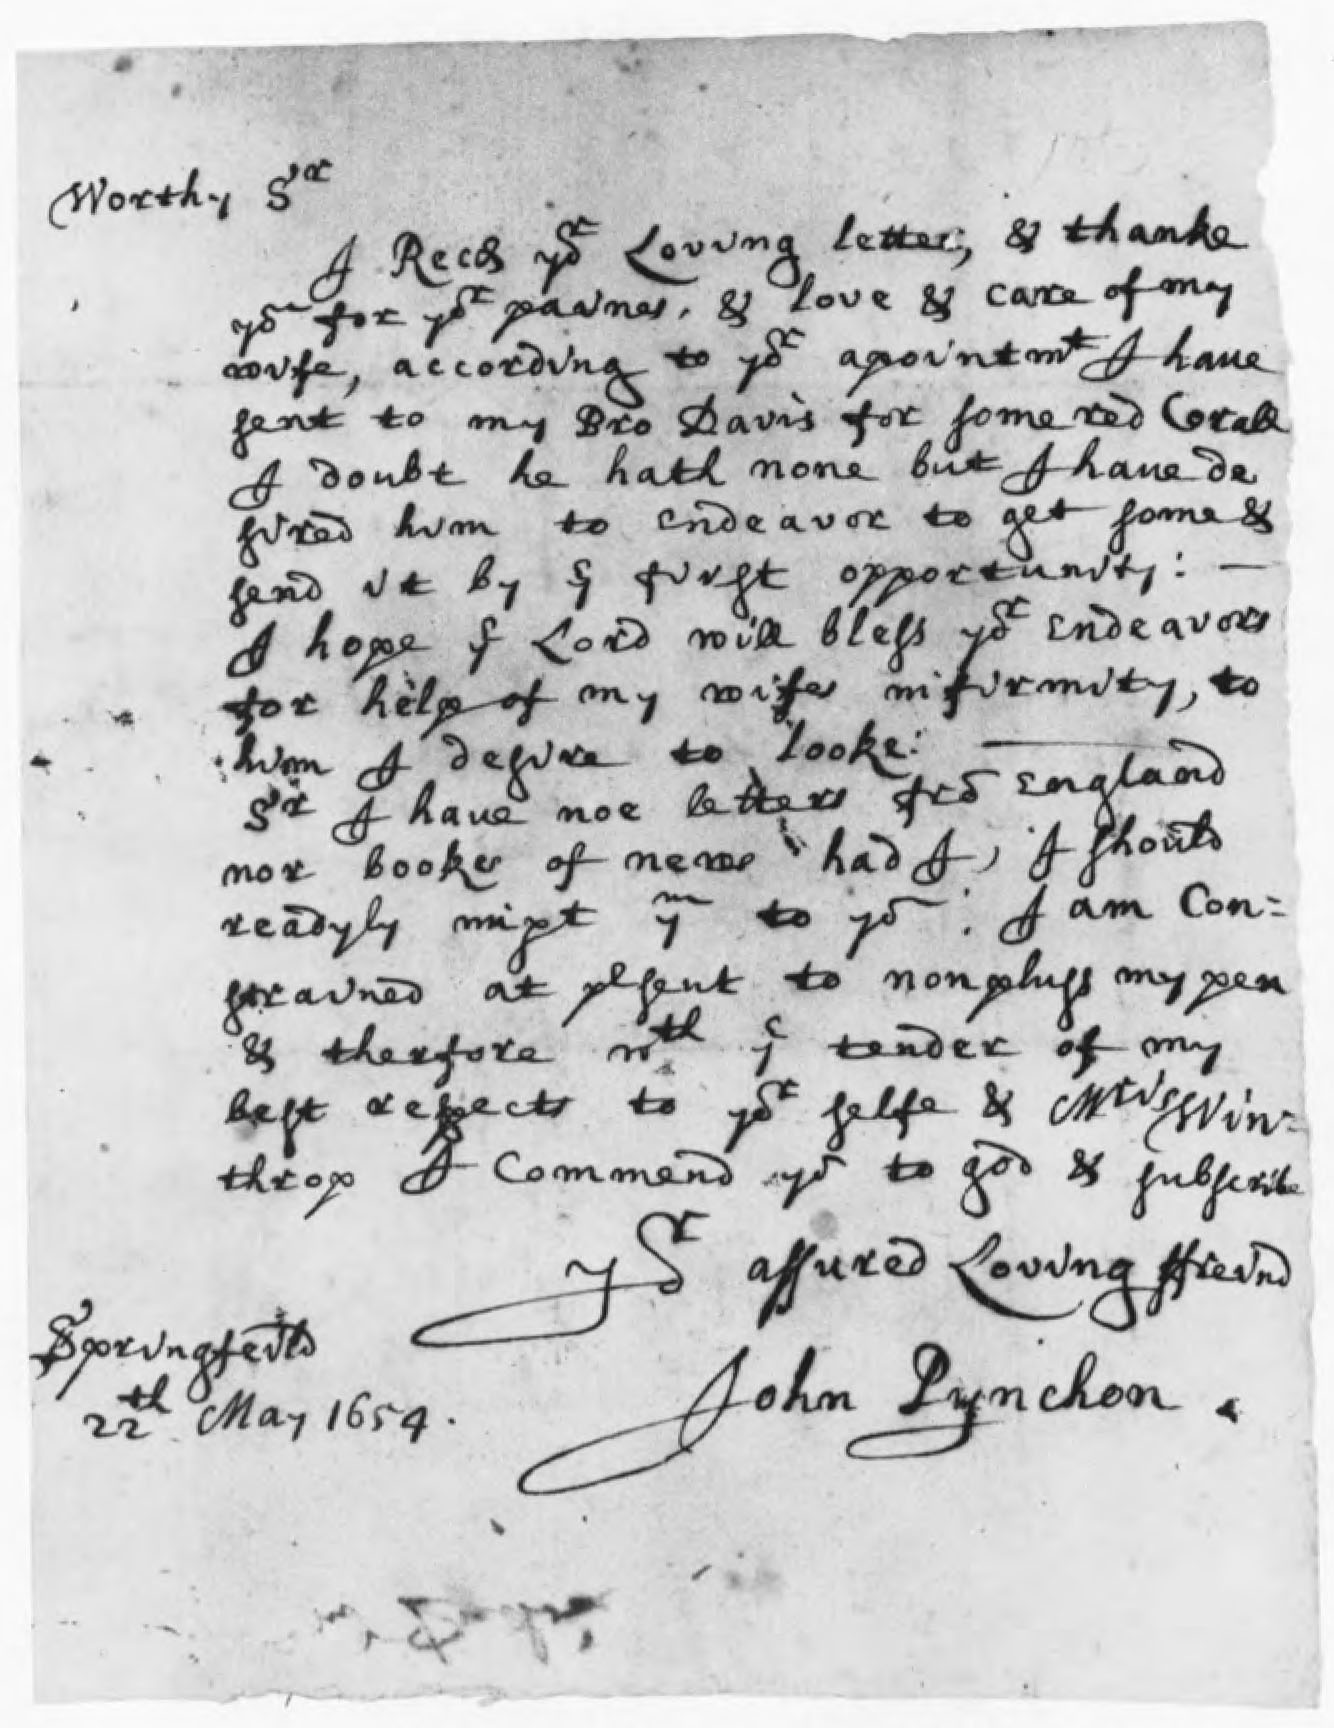 Worthy Sr
I Recd yor Loving letter, & thanke
yo for yor paines, & love & care of my
wife, according to yor apointmt I have
sent to my Bro Davis for some red Corall
I doubt he hath none but I haue de
sired him to endeavor to get some &
send it by ye first opportunity: —
I hope ye Lord will bless yor Endeavors
for help of my wifes infirmity, to
him I desire to looke: —
Sr I haue noe letters frō England
nor bookes of newes had I, I should
readyly impt ym to yo : I am Con=
strained at psent to nonpluss my pen
& therfore wth ye tender of my
best respects to yor selfe & Mris Win=
throp I Commend yo to god & subscribe
yor assured Loving ffreind
Springfeild
John Pynchon.
22th May 1654.